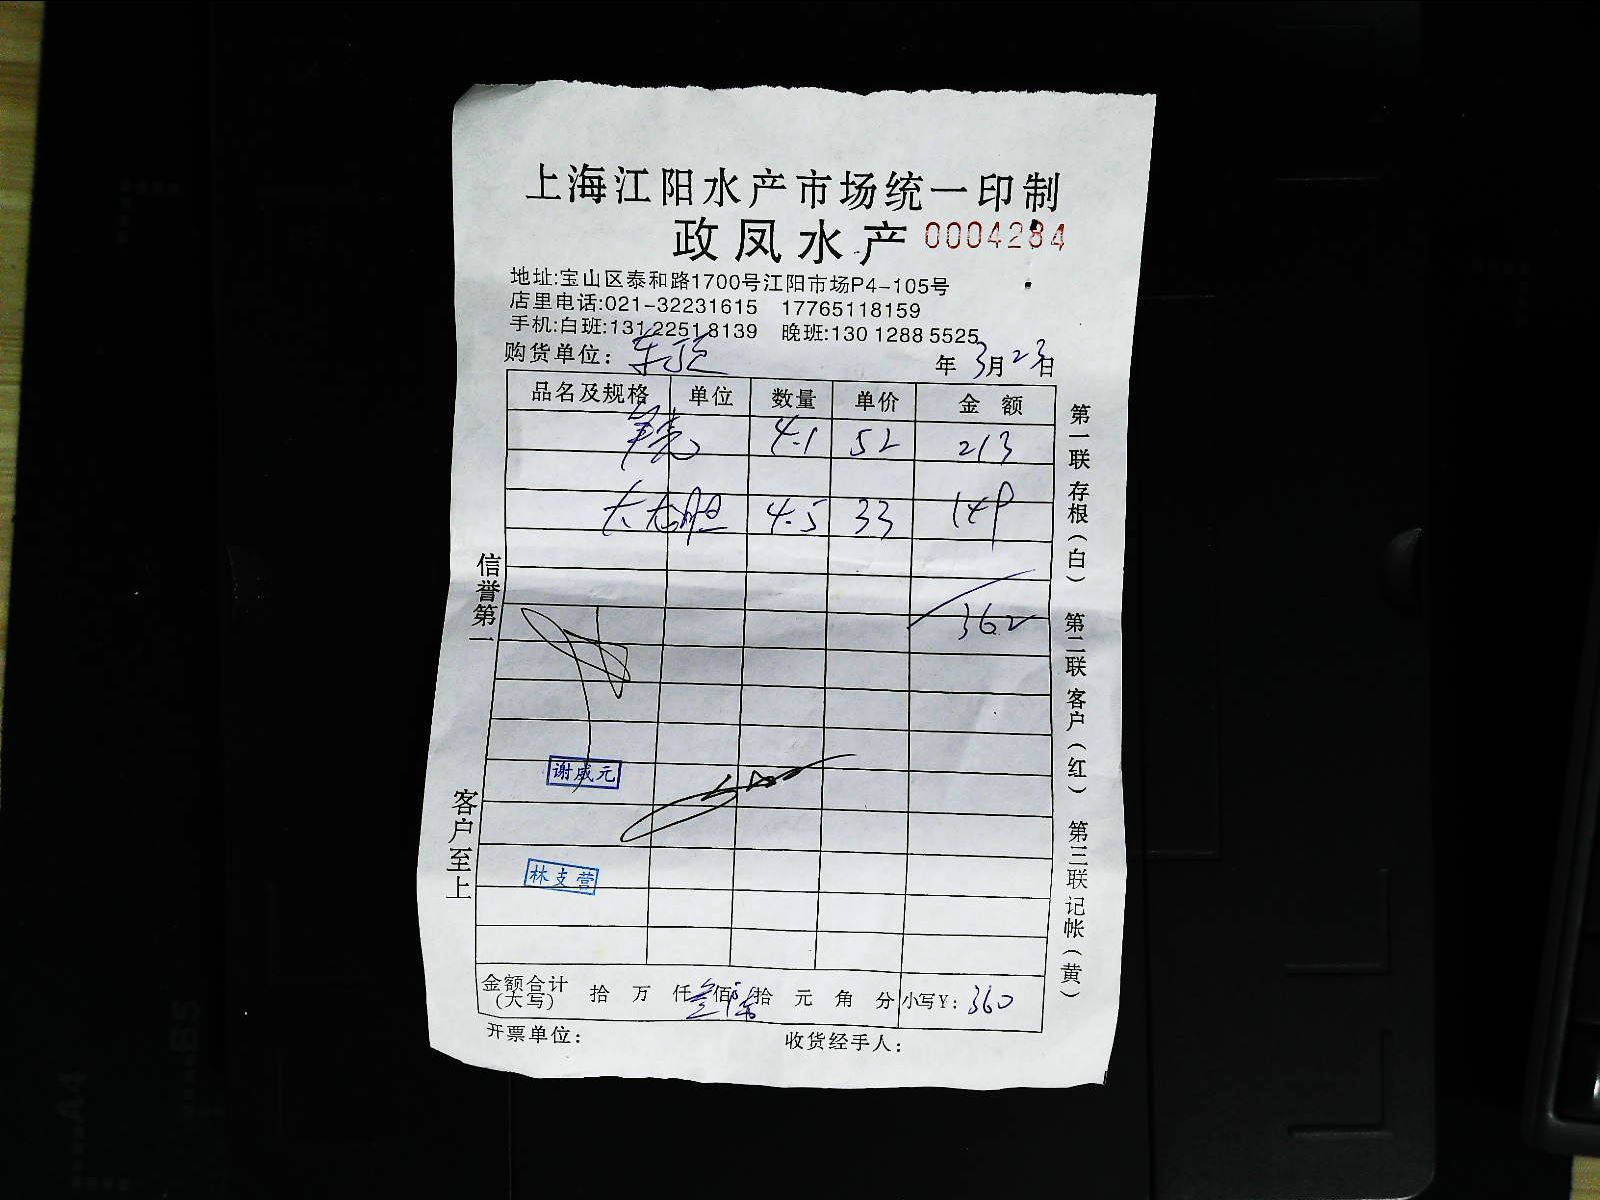 上海江阳水产市场统一印制
政凤水产 0004284
地址:宝山区泰和路1700号江阳市场P4-105号
店里电话:021-32231615 17765118159
手机:白班:13122518139 晚班:130 1288 5525
购货单位: 年 3月23日
品名及规格 单位 数量 单价 金 额
4.1 52 213
4.5 33 149
362
谢成元
林支营
金额合计(大写) 拾 万 仟 叁佰 拾 元 角 分 小写¥: 360
开票单位: 收货经手人:
信誉第一
客户至上
第一联 存根(白) 第二联 客户(红) 第三联 记帐(黄)